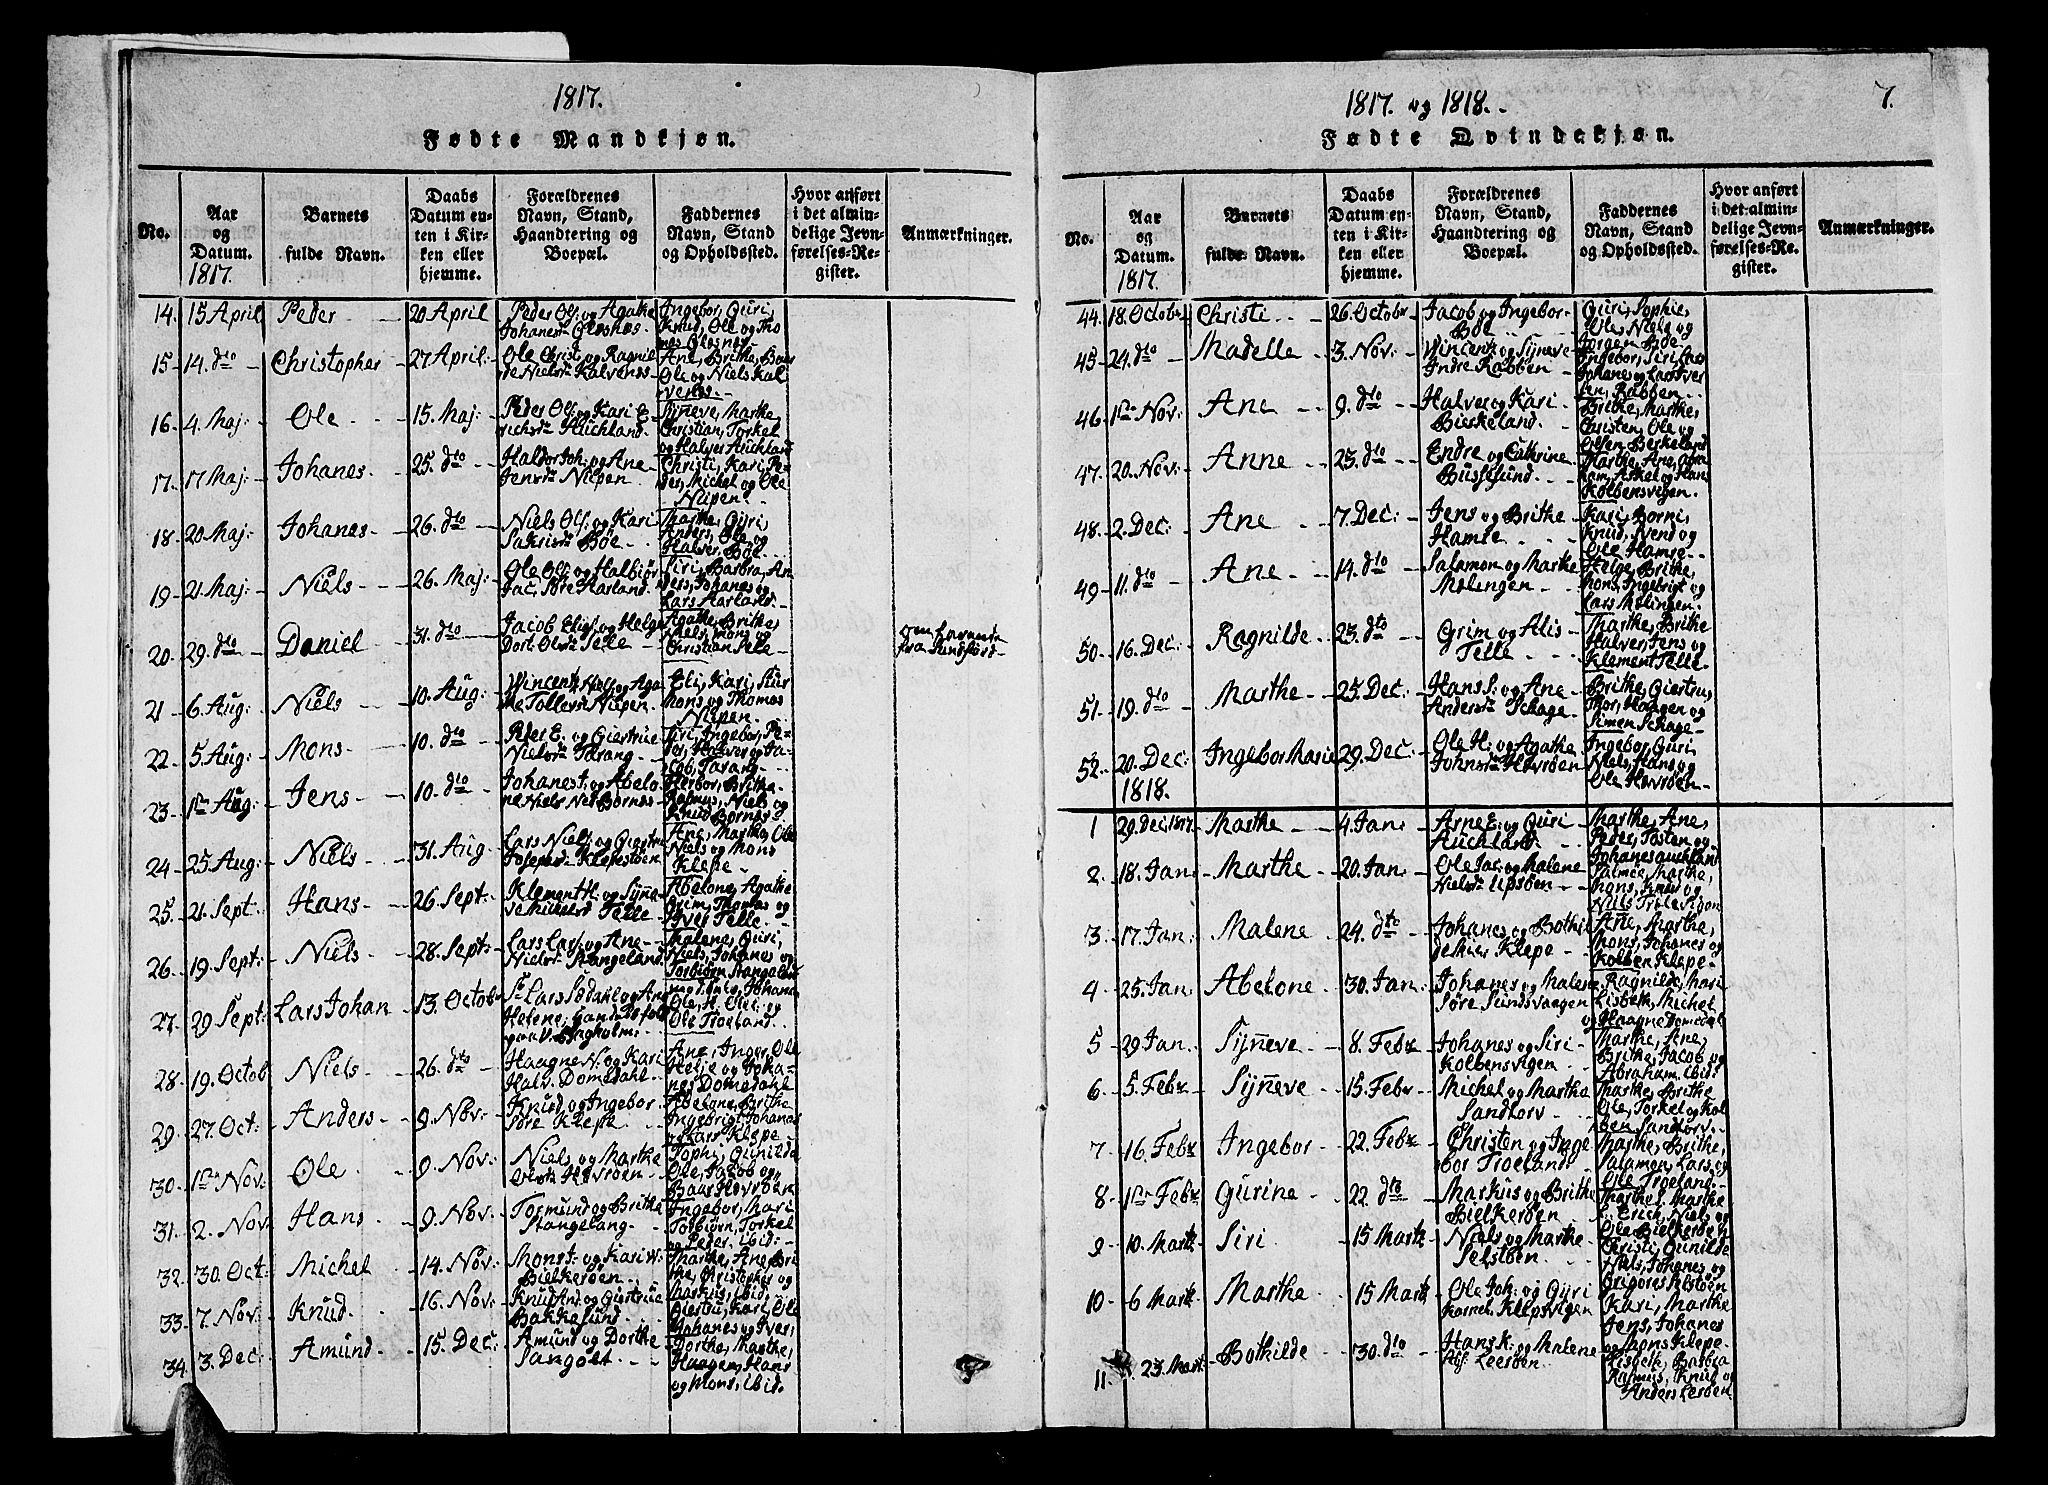 1817.
Fødte Mandkjøn.
No.
Aar og Datum. 1817.
Barnets fulde Navn.
Daabs Datum enten i Kirken eller hjemme.
Forældrenes Navn, Stand, Haandtering og Boepæl.
Faddernes Navn, Stand og Opholdssted.
Hvor anført i det almindelige Jevnførelses-Register.
Anmærkninger.
14. 15 April Peder 20 April Peder Ols: og Agathe Ingebor, Guri,
Johanesdr Glesnæs. Knud, Ole og Thomas Glesnæs.
15 14. dto Christopher 27 April: Ole Christ: og Ragnilde Nielsdr Kalvenes Ane, Brithe, Baar
Ole og Niels Kalvenes.
16. 4. Maj: Ole 15 Maj: Peder Ols: og Kari Erichsdr Auchland. Synneve, Marthe
Christian, Torkel
og Halver Auchland
17. 17 Maj: Johanes 25. dto Haldor Joh: og Ane Jensdr Nipen Christi, Kari, Peder, Michel og Ole
Nipen.
18. 20 Maj: Johanes 26. dto Niels Ols: og Kari Sakrisdr Böe Marthe, Gyri,
Anders, Ole, og
Halver, Böe.
19 21 Maj: Niels 26. Maj: Ole Ols: og Halbiör Jac: Söre Harland. Siri, Barbra, Anders, Johanes og
Lars Harland.
20. 29. dto Daniel 31. dto Jacob Elias: og Helge Dort: Olsdr Tele Agathe, Brithe,
Niels, Mons og
Christian Tele
fra
21 6. Aug: Niels 10. Aug: Vincent Niels: og Agathe Tollevsdr Nipen. Eli, Kari, Siur
Mons og Thomas
Nipen.
22. 5 Aug: Mons 10. dto Peder E. og Giertrue Nielsdr Tarang Siri, Ingebor, Peder, Halver og Jacob, Tarang
23. 1ste Aug: Jens 10. dto Johanes T: og Abelone Niels Ned Bornæs Herbor, Brithe
Rasmus, Niels og
Knud Bornæs
24. 25. Aug: Niels 31. Aug Lars Niels: og Giertru Josephsdr Klepestöen Ane, Marthe, Ole
Niels og Mons
Klepe
25. 21. Sept. Hans 26 Sept: Klement H: og Synneve Telle Abelone, Agathe
Grim, Thomas og
Iver Telle
26. 19. Sept: Niels 28. Sept: Lars Lars: og Ane Nielsdr Stangeland Malene, Guri,
Niels, Johanes og
Torbiörn Stangeland
27. 29 Sept: Lars Johan 13. Octob Sr Lars Sædahl og Ane Helene,
Johanes
Ole H. Ole: og
Ole Troeland.
28. 19. Octob Niels 26. dto Haagne N: og Kari Halv. Domedahl Ane, Inger, Ole
Helje og Johanes Domedahl
29. 27. Oct: Anders 9. Nov: Knud og Ingebor Söre Klepe Abelone, Brithe
Ingebrigt, Johanes
og Lars Klepe
30. 1ste Nov: Ole 9 Nov: Niels og Marthe Olsdr Hevröen Sophi, Gunilda
Ole, Jacob og
Baar Hovröen
31. 2. Nov Hans 9 Nov: Tormund og Brithe Stangelang Ingebor, Mari
Torbiörn, Torkel
og Peder, ibid:
32. 30. Oct: Michel 14. Nov: Mons T: og Kari N: Bielkeröen Marthe, Ane Brithe, Christopher og
Markus, ibid:
33. 7. Nov: Knud. 16. Nov: Knud And: og Giertrue Bakkesund Giertru, Kari, Ole
Johanes og Iver,
34. 3. Dec: Amund 15. Dec: Amund og Dorthe Sangolt Dorthe, Marthe,
Haagen, Hans
og Mons, ibid.
1817. og 1818.
7.
Fødte Qvindekjøn.
No.
Aar og Datum. 1817.
Barnets fulde Navn.
Daabs Datum enten i Kirken eller hjemme.
Forældrenes Navn, Stand, Haandtering og Boepæl.
Faddernes Navn, Stand og Opholdssted.
Hvor anført i det almindelige Jevnførelses-Register.
Anmærkninger.
44. 18. Octobr Christi 26. Octobr Jacob og Ingebor Böe Guri, Sophie,
Ole, Niels og
Jorgen Böe
45 24. dto Madelle 3. Nov: Vincent: og Synneve Indre Rabben Ingebor, Siri,
Johanes og Lars Rabben
46. 1ste Nov: Ane 9. dto Halver og Kari Birkeland. Brithe, Marthe,
Christen, Ole og
Olsen, Berkeland
47. 20. Nov: Anne 23. dto Endre og Cathrine Bussesund Marthe, Ane, Abraham, Askel og Hans
Kolbensvegen.
48. 2. Dec: Ane 7. Dec: Jens og Brithe Hamre Kari, Borni,
Knud, Svend og
Ole Hamre
49 11. dto Ane 14. dto Salamon og Marthe Molengen Helge, Brithe,
Mons, Ingebrigt og
Lars Mölingen.
50. 16. Dec: Ragnilde 23. dto Grim og Alis Telle Marthe, Brithe
Halver, Jens og
Klement Telle
51. 19. dto Marthe 25. Dec: Hans S: og Ane Andersdr Schage Brithe, Giertru,
Thor, Haagen og
Simen Schage
52. 20. Dec: Ingebor Marie 29. Dec: Ole H: og Agathe Johnsdr Hovröen Ingebor, Guri,
Niels, Hans og
Ole Hovröen
1818.
1 29. Dec: 1817. Marthe 4. Jan: Arne E: og Guri Auchland Marthe, Ane,
Peder, Tosten og
Johanes Auchland
2. 18. Jan: Marthe 20. Jan: Ole Jac: og Malene Nielsdr Upsöen Palmea, Marthe,
Mons, Knud og
Niels
3. 17. Jan: Malene 24. dto Johanes og Bothilde Klepe Ane, Marthe,
Mons, Johanes og
Kolben Klepe
4 25. Jan: Abelone 30. Jan: Johanes og Malene Söre Sundsvaagen Ragnilde, Mari
Lisbeth, Michel
og Haagne Domedal
5 29 Jan. Synneve 8. Febr Johanes og Siri Kolbensvigen Marthe, Ane,
Brithe, Jacob og
Abraham, ibid:
6. 5. Febr Synneve 15. Febr Michel og Martha Sandtorv Marthe, Brithe
Ole, Torkel og Kolben Sandtorv.
7. 16. Febr Ingebor 22. Febr Christen og Ingebor Troeland Marthe, Brithe,
Salamon, Lars og
Ole Troeland.
8 1ste Febr Gurine 22 dto Markus og Brithe Bielkeröen Marthe, Marthe
Erich, Niels og
Ole Bielkeröen
9 10. Martz Siri 15 Martz Niels og Marthe Selstöen Christi, Gunilde
Niels, Johanes og
Grigores Selstöen
10 6 Martz Marthe 15 Martz Ole Joh: og Gyri Kornel: Klepsvigen Kari, Marthe
Jens, Johanes
og Mons Klepe
11. 23. Mart: Bothilde 30. dto Hans K: og Malene Leeröen. Lisbeth, Barbra
Rasmus, Knud og
Anders Leröen.